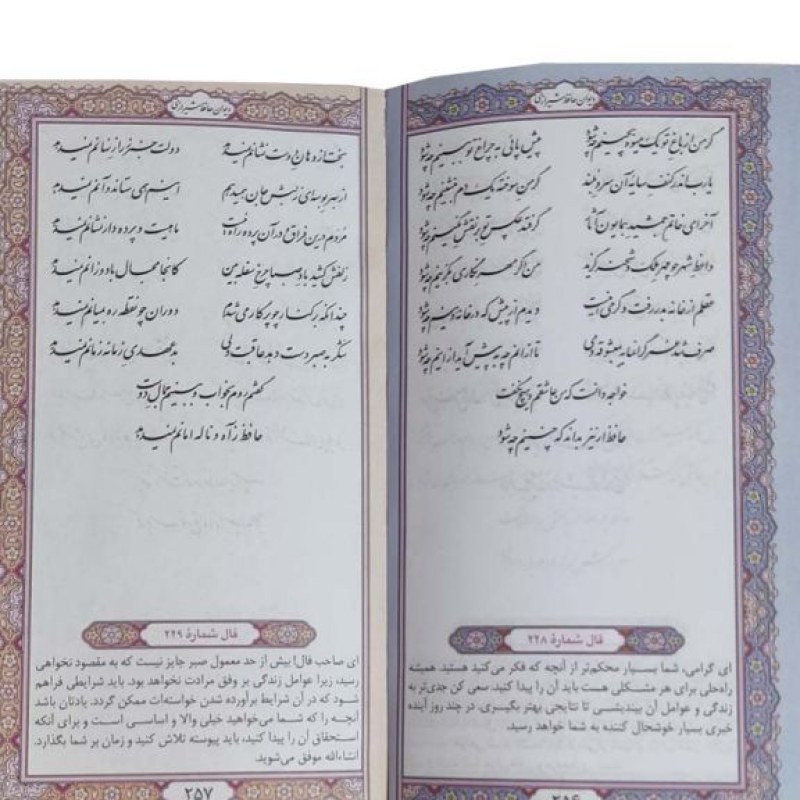 دیوان حافظ شیرازی
گر من از باغ تو یک میوه بچینم چه شود پیش پائی به چراغ تو ببینم چه شود
یارب اندر کنف سایهٔ آن سرو بلند گر من سوخته یک دم بنشینم چه شود
آخر ای خاتم جمشید همایون آثار گر فتد عکس تو بر نقش نگینم چه شود
واعظ شهر چو مهر ملک و شحنه گزید من اگر مهر نگاری بگزینم چه شود
عقلم از خانه بدر رفت و گر می اینست دیدم از پیش که در خانهٔ دینم چه شود
صرف شد عمر گرانمایه به معشوقه و می تا از آنم چه به پیش آید از اینم چه شود
خواجه دانست که من عاشقم و هیچ نگفت
حافظ ار نیز بداند که چنینم چه شود
فال شمارهٔ ۲۲۸
ای گرامی، شما بسیار محکم‌تر از آنچه که فکر می‌کنید هستید. همیشه
راه‌حلی برای هر مشکلی هست باید آن را پیدا کنید. سعی کن جدی‌تر به
زندگی و عوامل آن بیندیشی تا نتایجی بهتر بگیری. در چند روز آینده
خبری بسیار خوشحال کننده به شما خواهد رسید.
۲۵۶
دیوان حافظ شیرازی
بخت از دهان دوست نشانم نمیدهد دولت خبر ز راز نهانم نمیدهد
از بهر بوسه‌ای ز لبش جان همی دهم اینم همی ستاند و آنم نمیدهد
مردم در این فراق و در آن پرده راه نیست یا هست و پرده دار نشانم نمیدهد
زلفش کشید باد صبا چرخ سفله بین کانجا مجال باد وزانم نمیدهد
چندانکه بر کنار چو پرگار می شدم دوران چو نقطه ره به میانم نمیدهد
شکر به صبر دست دهد عاقبت ولی بد عهدی زمانه زمانم نمیدهد
گفتم روم بخواب و ببینم جمال دوست
حافظ ز آه و ناله امانم نمیدهد
فال شمارهٔ ۲۲۹
ای صاحب فال! بیش از حد معمول صبر جایز نیست که به مقصود نخواهی
رسید، زیرا عوامل زندگی بر وفق مرادت نخواهد بود. باید شرایطی فراهم
شود که در آن شرایط برآورده شدن خواسته‌ات ممکن گردد. یادتان باشد
آنچه را که شما می‌خواهید خیلی والا و اساسی است و برای آنکه
استحقاق آن را پیدا کنید، باید پیوسته تلاش کنید و زمان بر شما بگذارد.
انشاءالله موفق می‌شوید.
۲۵۷